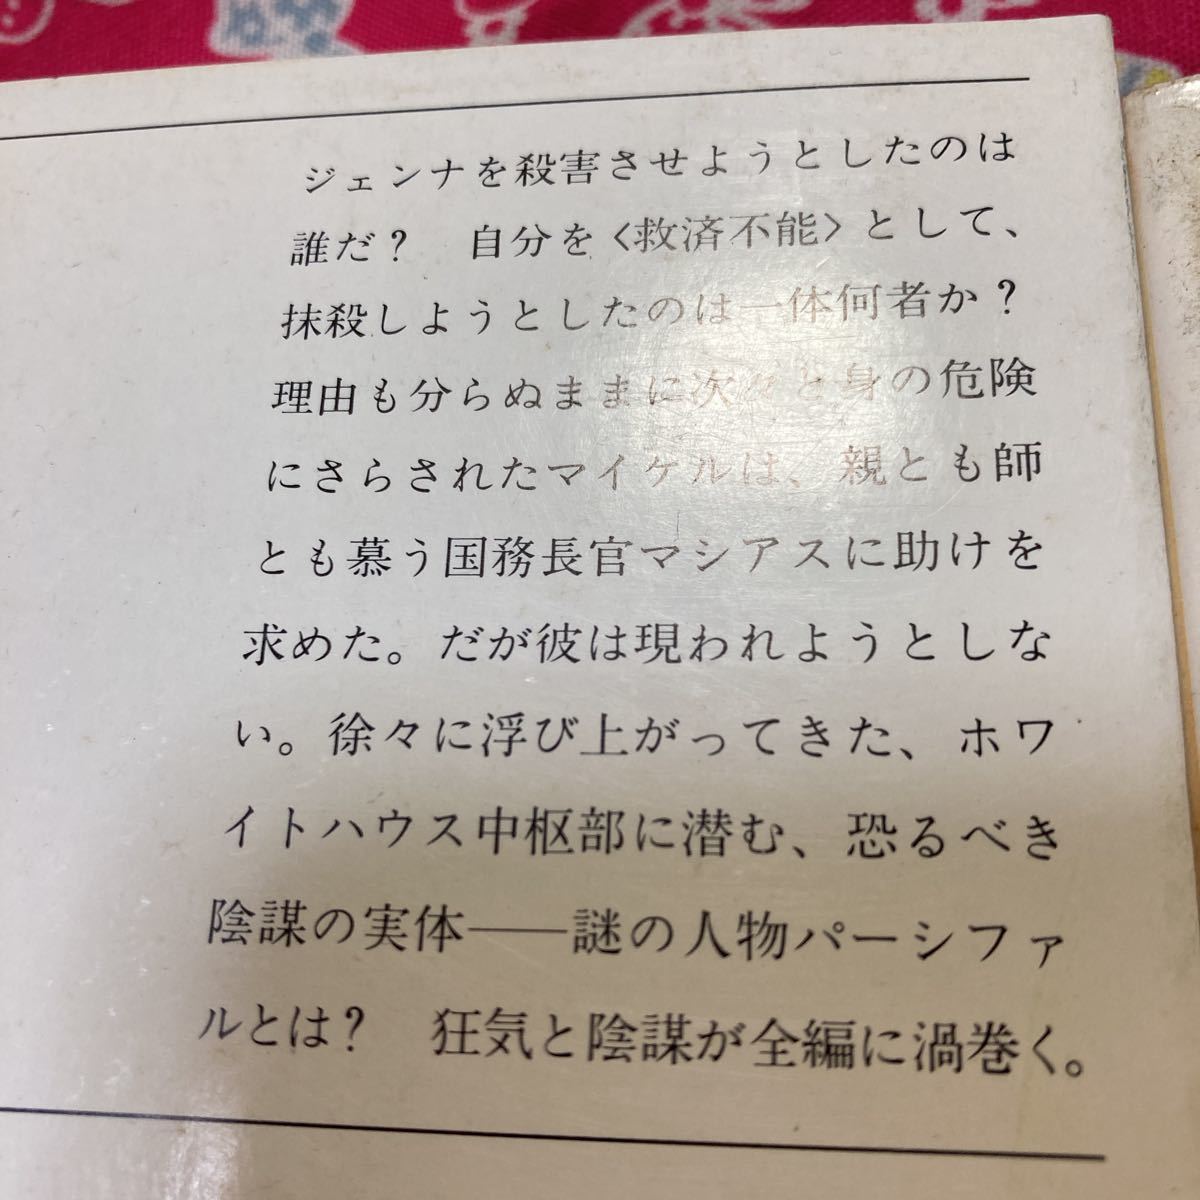 ジェンナを殺害させようとしたのは
誰だ？　自分を〈救済不能〉として、
抹殺しようとしたのは一体何者か？
理由も分らぬままに次々と身の危険
にさらされたマイケルは、親とも師
とも慕う国務長官マシアスに助けを
求めた。だが彼は現われようとしな
い。徐々に浮び上がってきた、ホワ
イトハウス中枢部に潜む、恐るべき
陰謀の実体――謎の人物パーシファ
ルとは？　狂気と陰謀が全編に渦巻く。